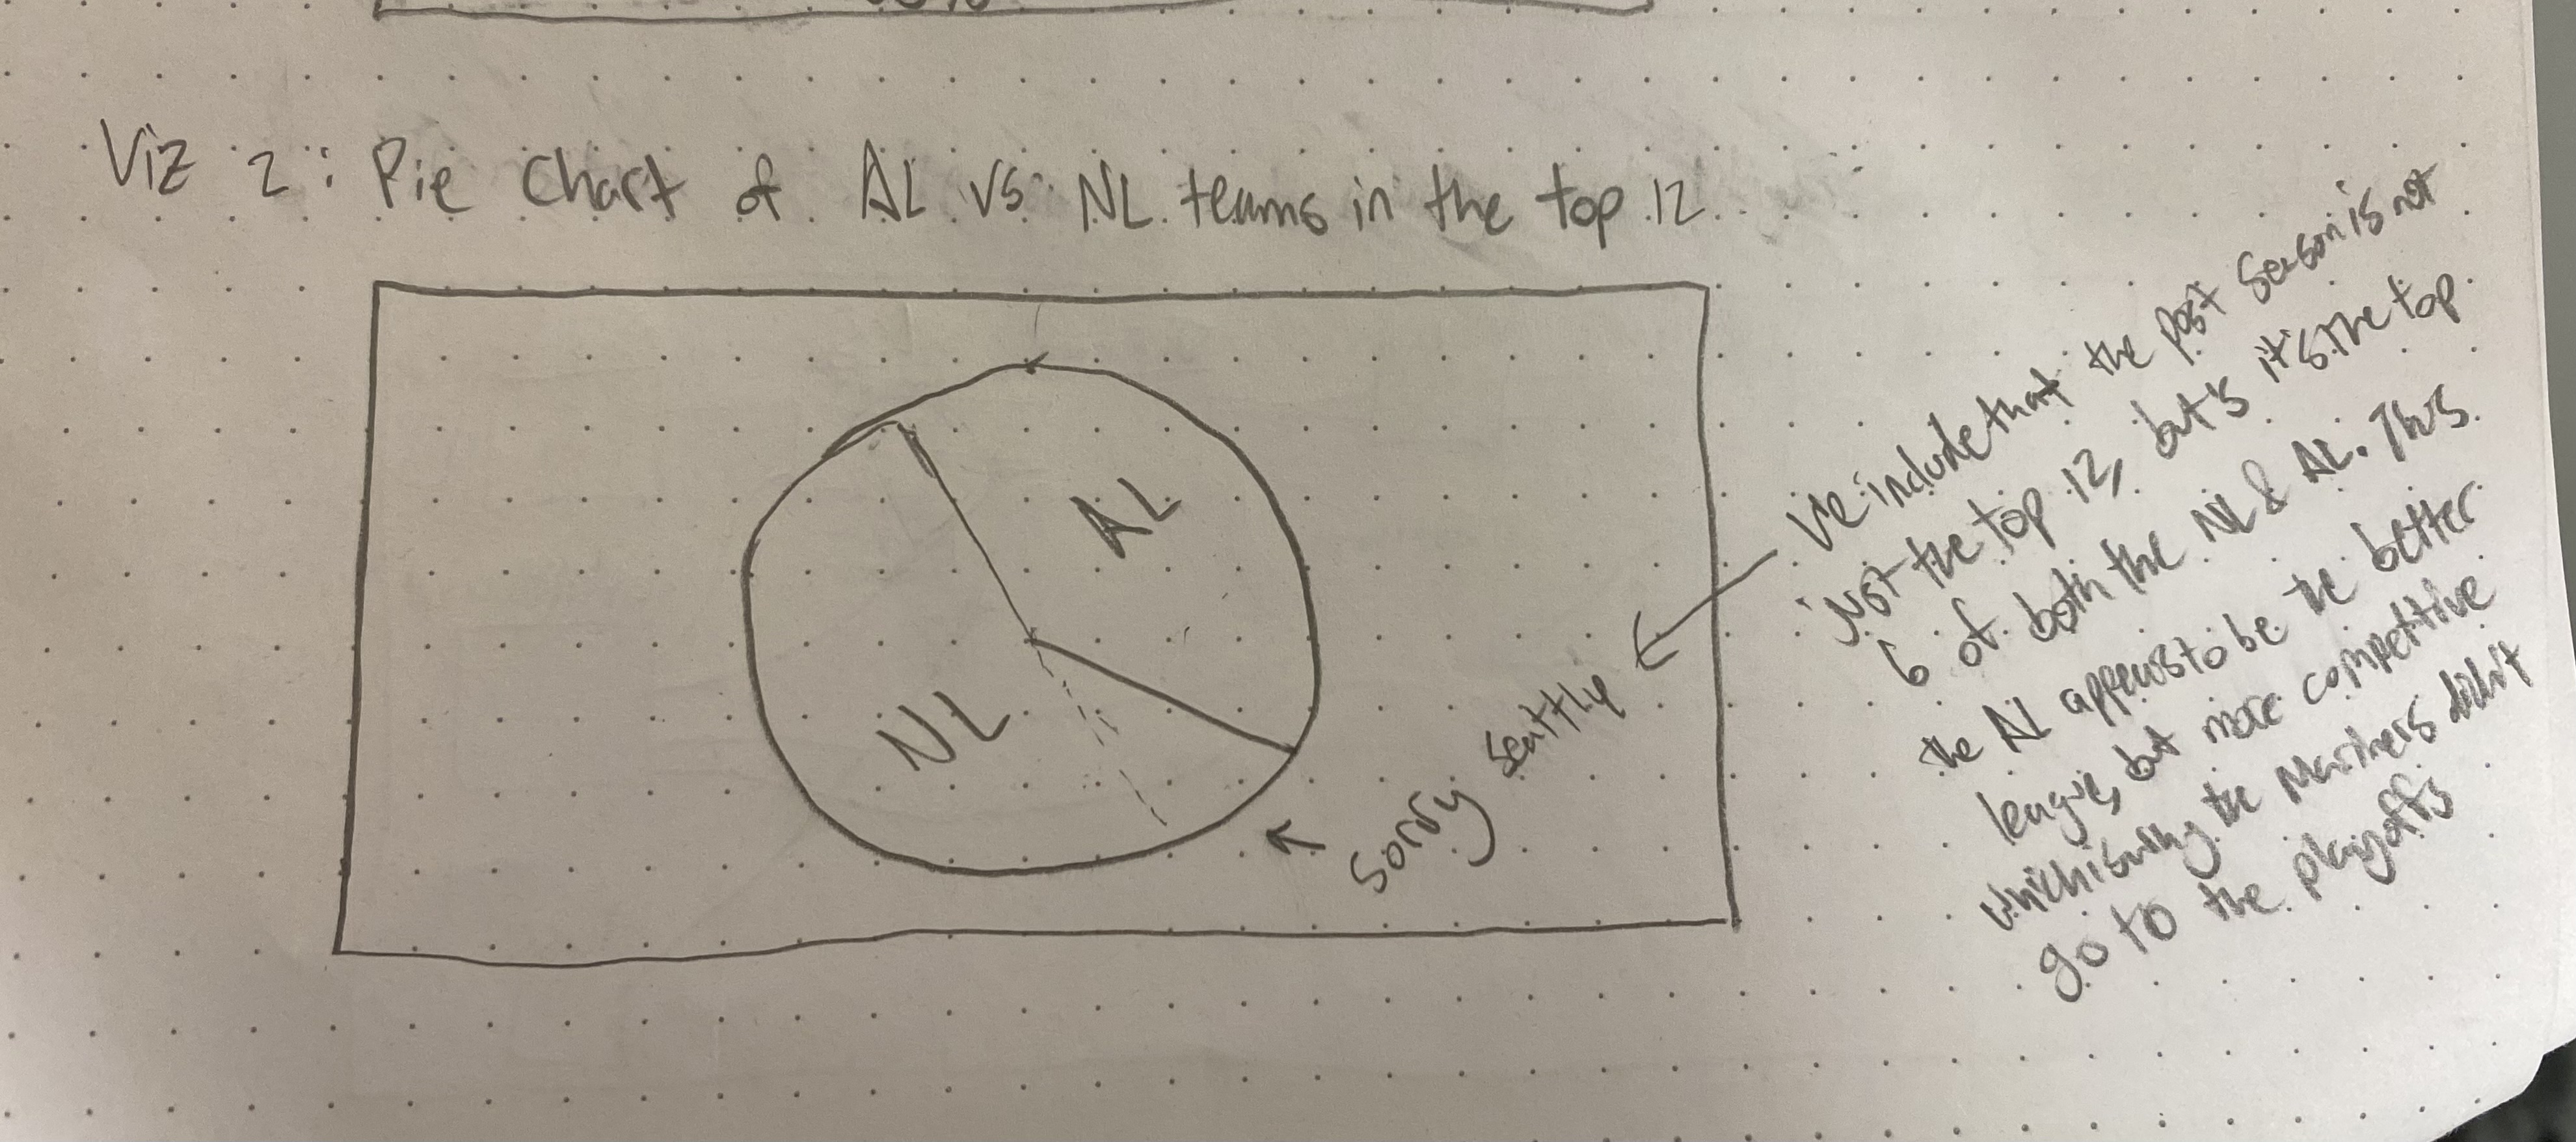 Viz 2: Pie Chart of AL vs NL teams in the top 12
AL
NL
Sorry Seattle
We include that the post season is not
just the top 12, but's it's the top
6 of both the NL & AL. Thus
the AL appears to be the better
league, but more competitive
which is why the Mariners didn't
go to the playoffs